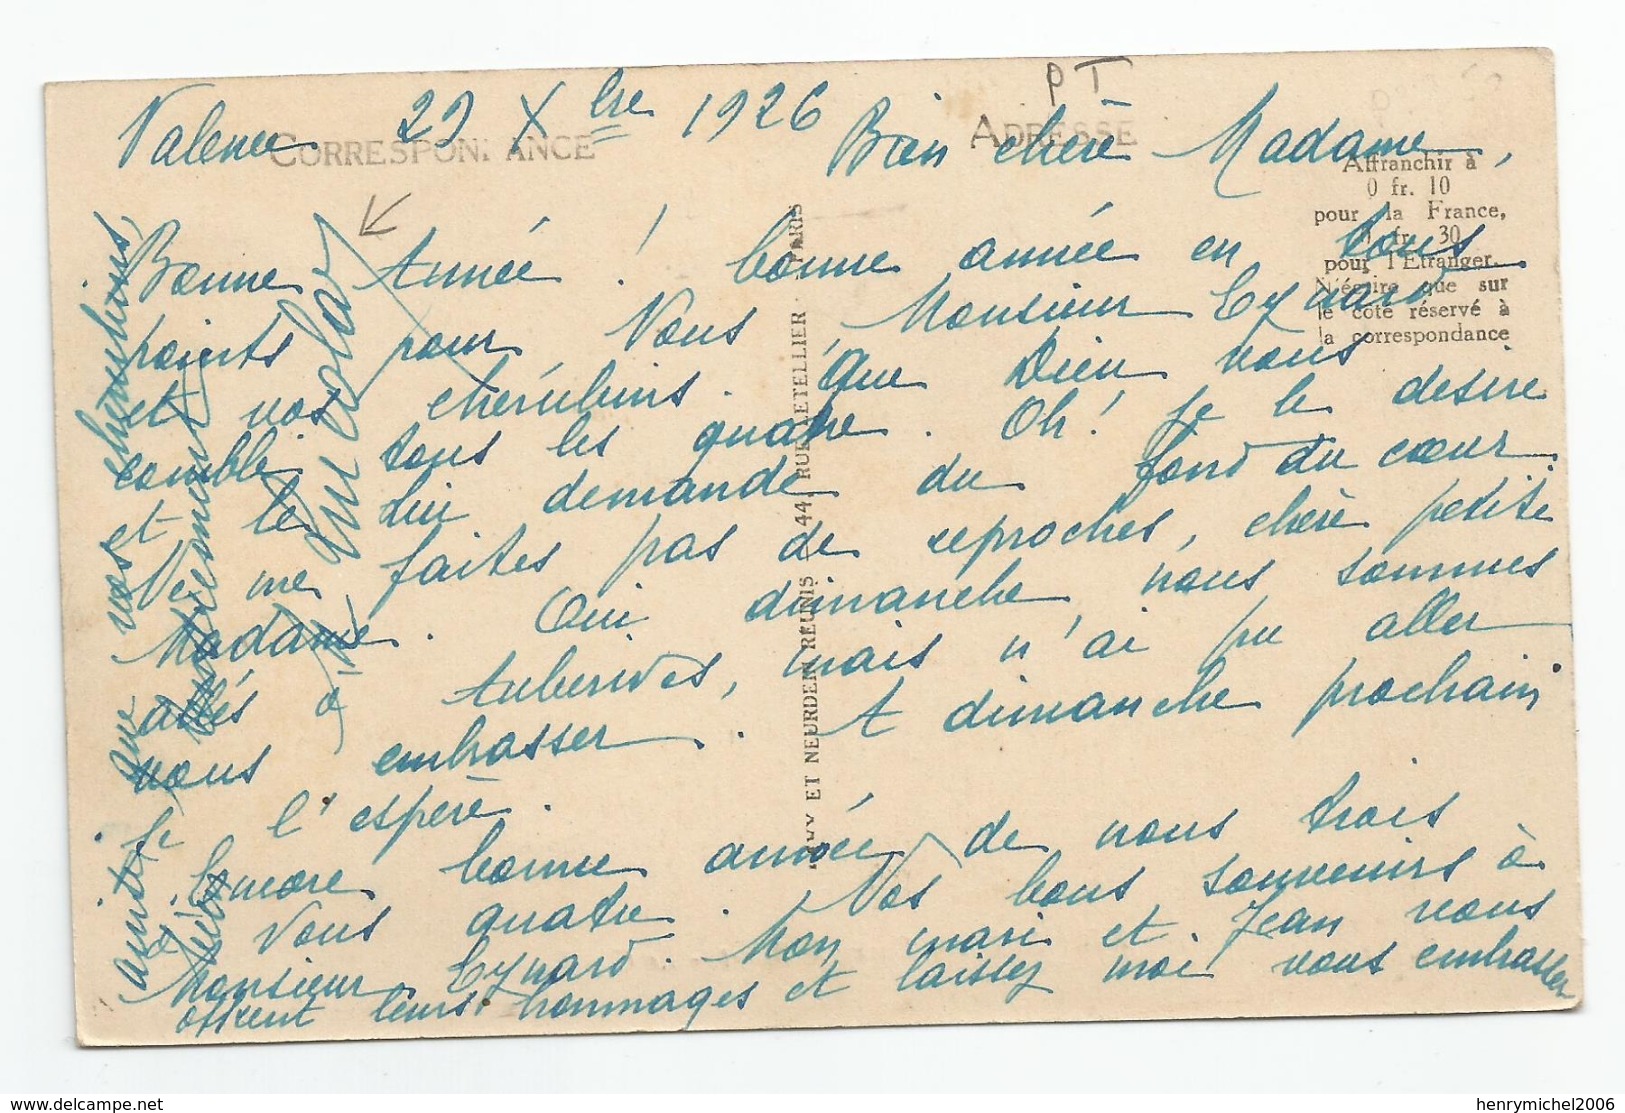 PT
Valence 29 Xbre 1926 Bien chère Madame,
CORRESPONDANCE
ADRESSE
Affranchir à
0 fr. 10
pour la France,
0 fr. 30
pour l'Etranger.
N'écrire que sur
le côté réservé à
la correspondance
Bonne Année ! bonne année en tous
points pour Vous, Monsieur Eynard
et vos chérubins. Que Dieu vous
comble tous les quatre. Oh! je le désire
et le Lui demande du fond du cœur.
Ne me faites pas de reproches, chère petite
Madame. Oui dimanche, nous sommes
allés à Auberives, mais n'ai pu aller
vous embrasser. A dimanche prochain
je l'espère.
Encore bonne année de nous trois
à Vous quatre. Nos bons souvenirs à
Monsieur Eynard. Mon mari et Jean vous
offrent leurs hommages et laissez moi vous embrasser
ainsi que vos chérubins
LEVY ET NEURDEIN REUNIS 44, RUE LETELLIER - PARIS
henrymichel2006
delcampe.net